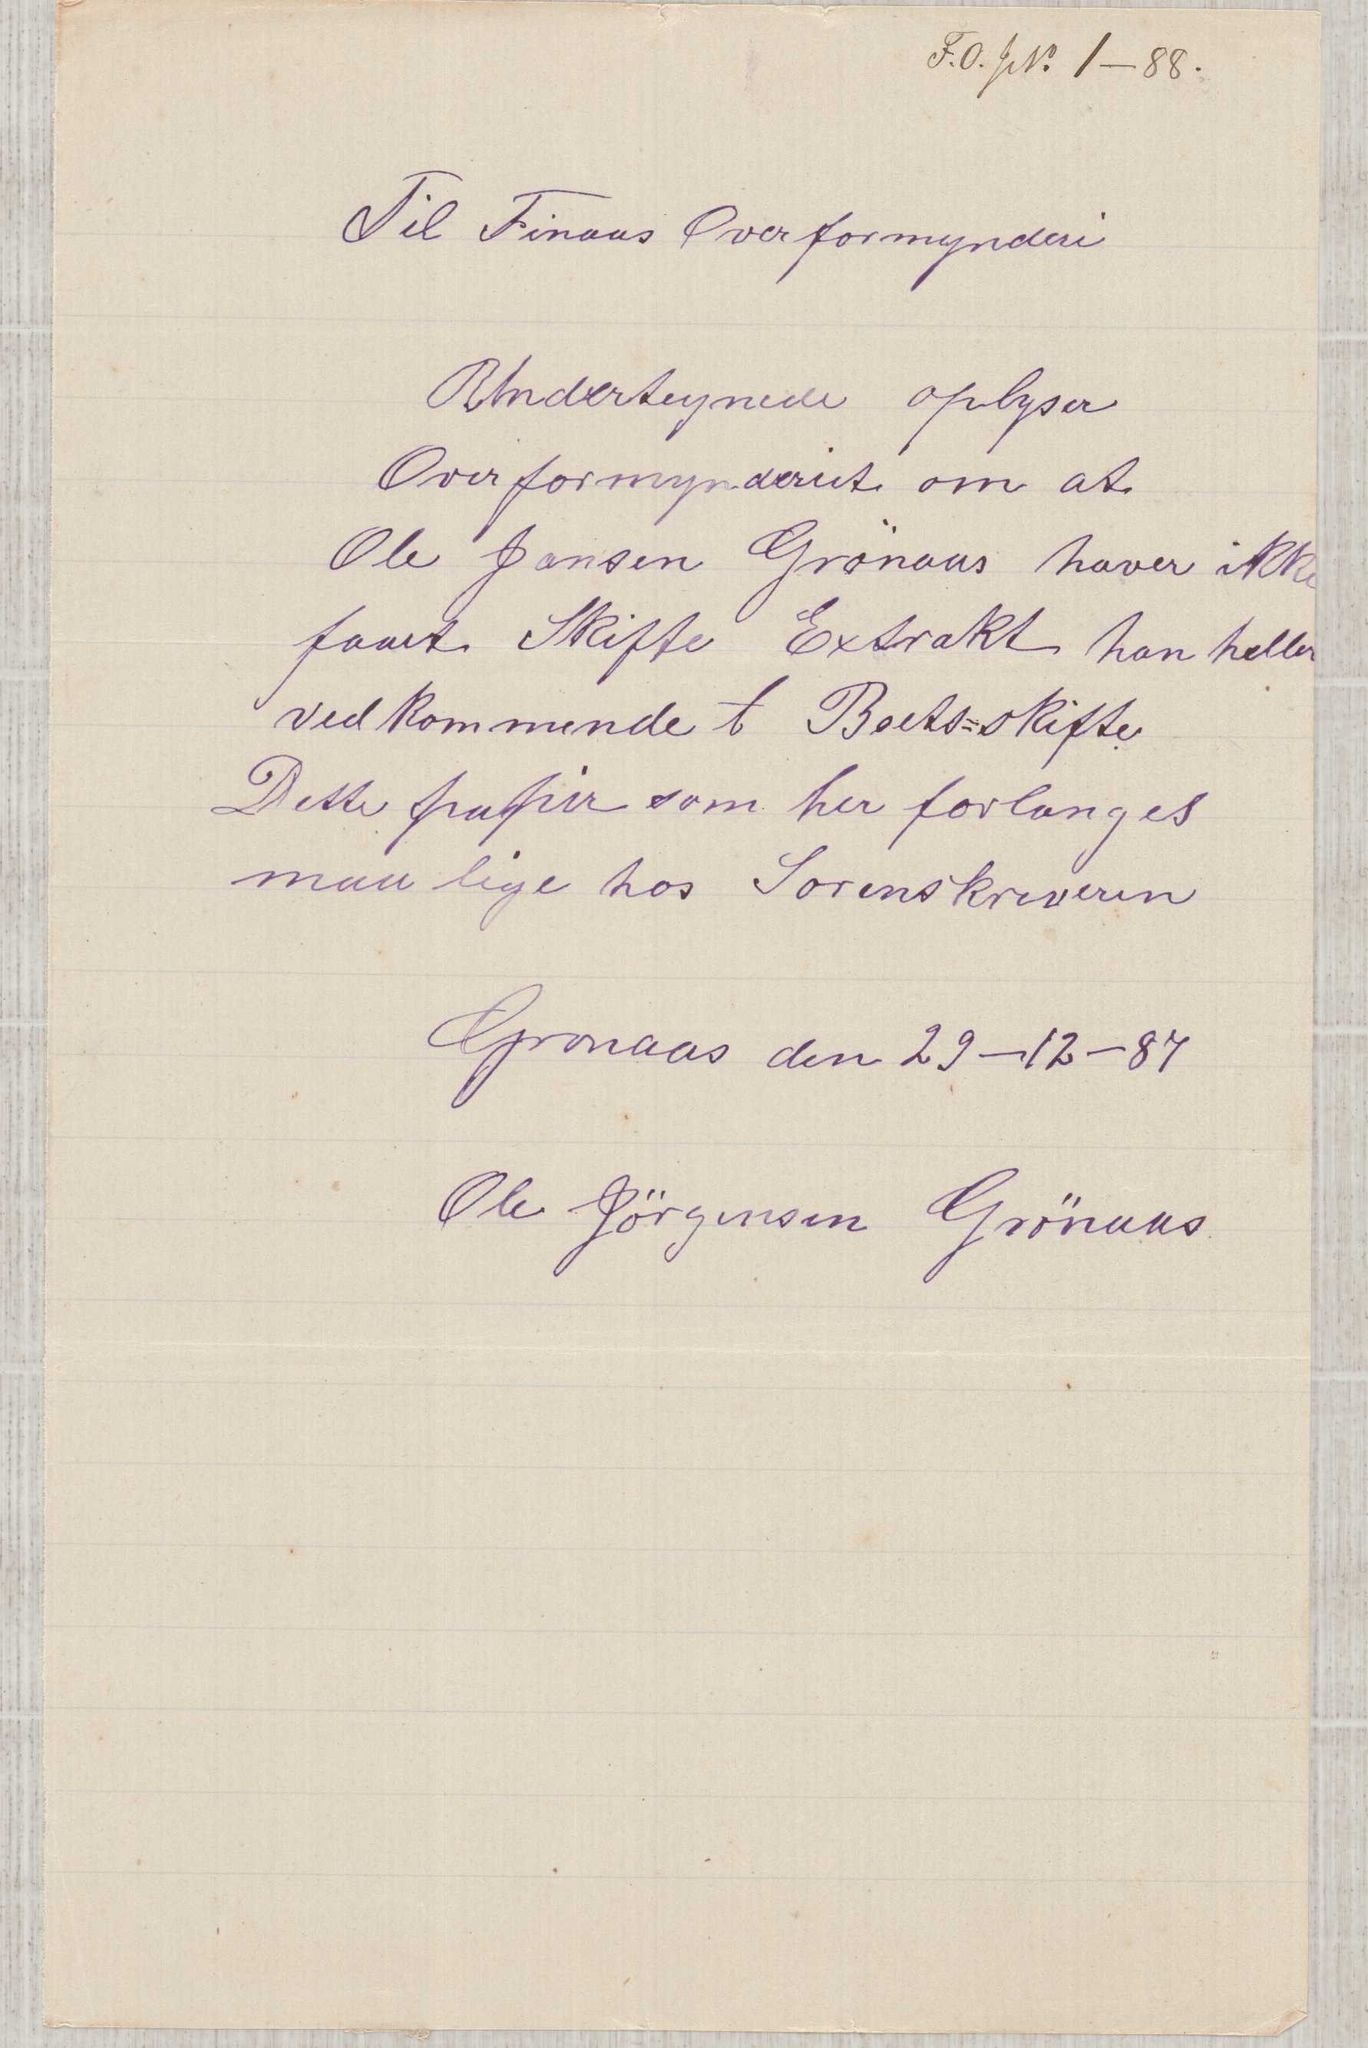 F.O. J№. 1—88.
Til Finaas Overformynderi
Underteynede oplyser
Overformynderiet om at
Ole Jansen Grönaas haver ikke
faaet Skifte Extrakt han heller
vedkommende t Boets=skifte
Dette papir som her forlanges
maa lige hos Sorenskriveren
Gronaas den 29—12—87
Ole Jörgensen Grönaas